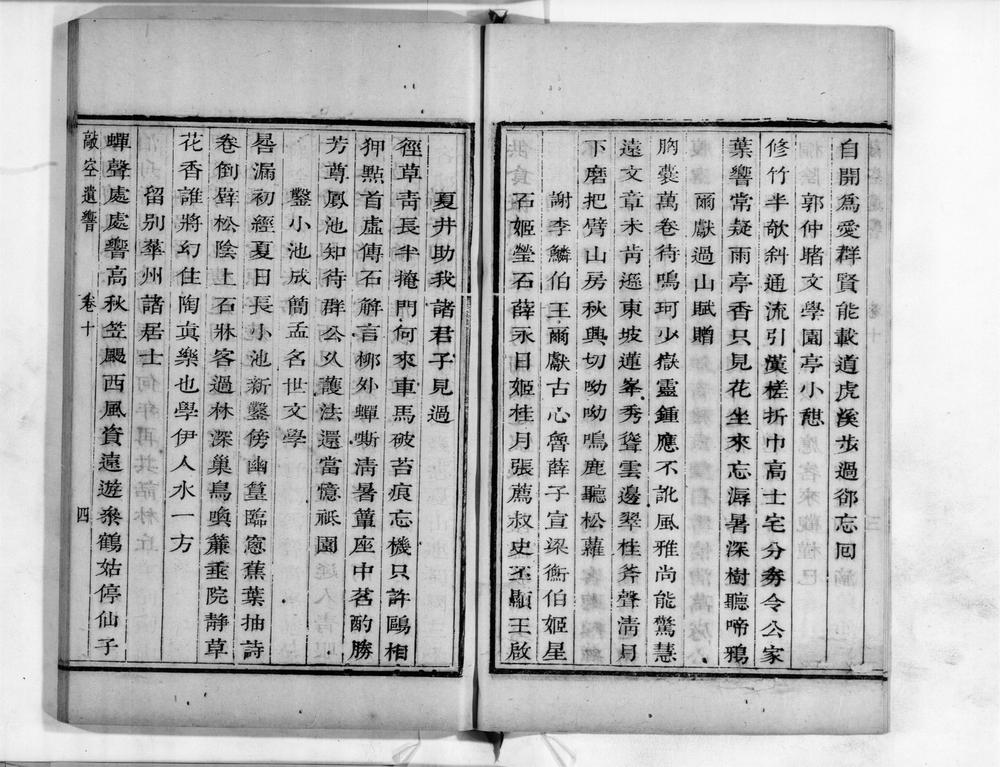 自開為愛群賢能載道虎溪步過卻忘回
郭仲睹文學園亭小憇
修竹半欹斜通流引漢槎折巾高士宅分券令公家
葉響常疑雨亭香只見花坐來忘溽暑深樹聽啼鴉
爾獻過山賦贈
胸囊萬卷待鳴珂少嶽靈鍾應不訛風雅尚能驚慧
遠文章未肯遜東坡蓮峯秀聳雲邊翠桂斧聲清月
下磨把臂山房秋興切呦呦鳴鹿聽松蘿
謝李鱗伯王爾獻古心魯薛子宣梁衡伯姬星
石姬瑩石薛永日姬桂月張薦叔史丕顯王啟
夏井助我諸君子見過
徑草靑長半掩門何來車馬破苔痕忘機只許鷗相
狎點首虛傳石解言柳外蟬嘶清暑簟座中茗酌勝
芳尊鳳池知待群公久護法還當憶祇園
鑿小池成簡孟名世文學
晷漏初經夏日長小池新鑿傍幽篁臨窻蕉葉抽詩
卷倒壁松陰上石牀客過林深巢鳥喚簾垂院靜草
花香誰將幻住陶真樂也學伊人水一方
留別華州諸居士
蟬聲處處響高秋笠颺西風資遠遊叅鶴姑停仙子
敲空遺響 卷十 四